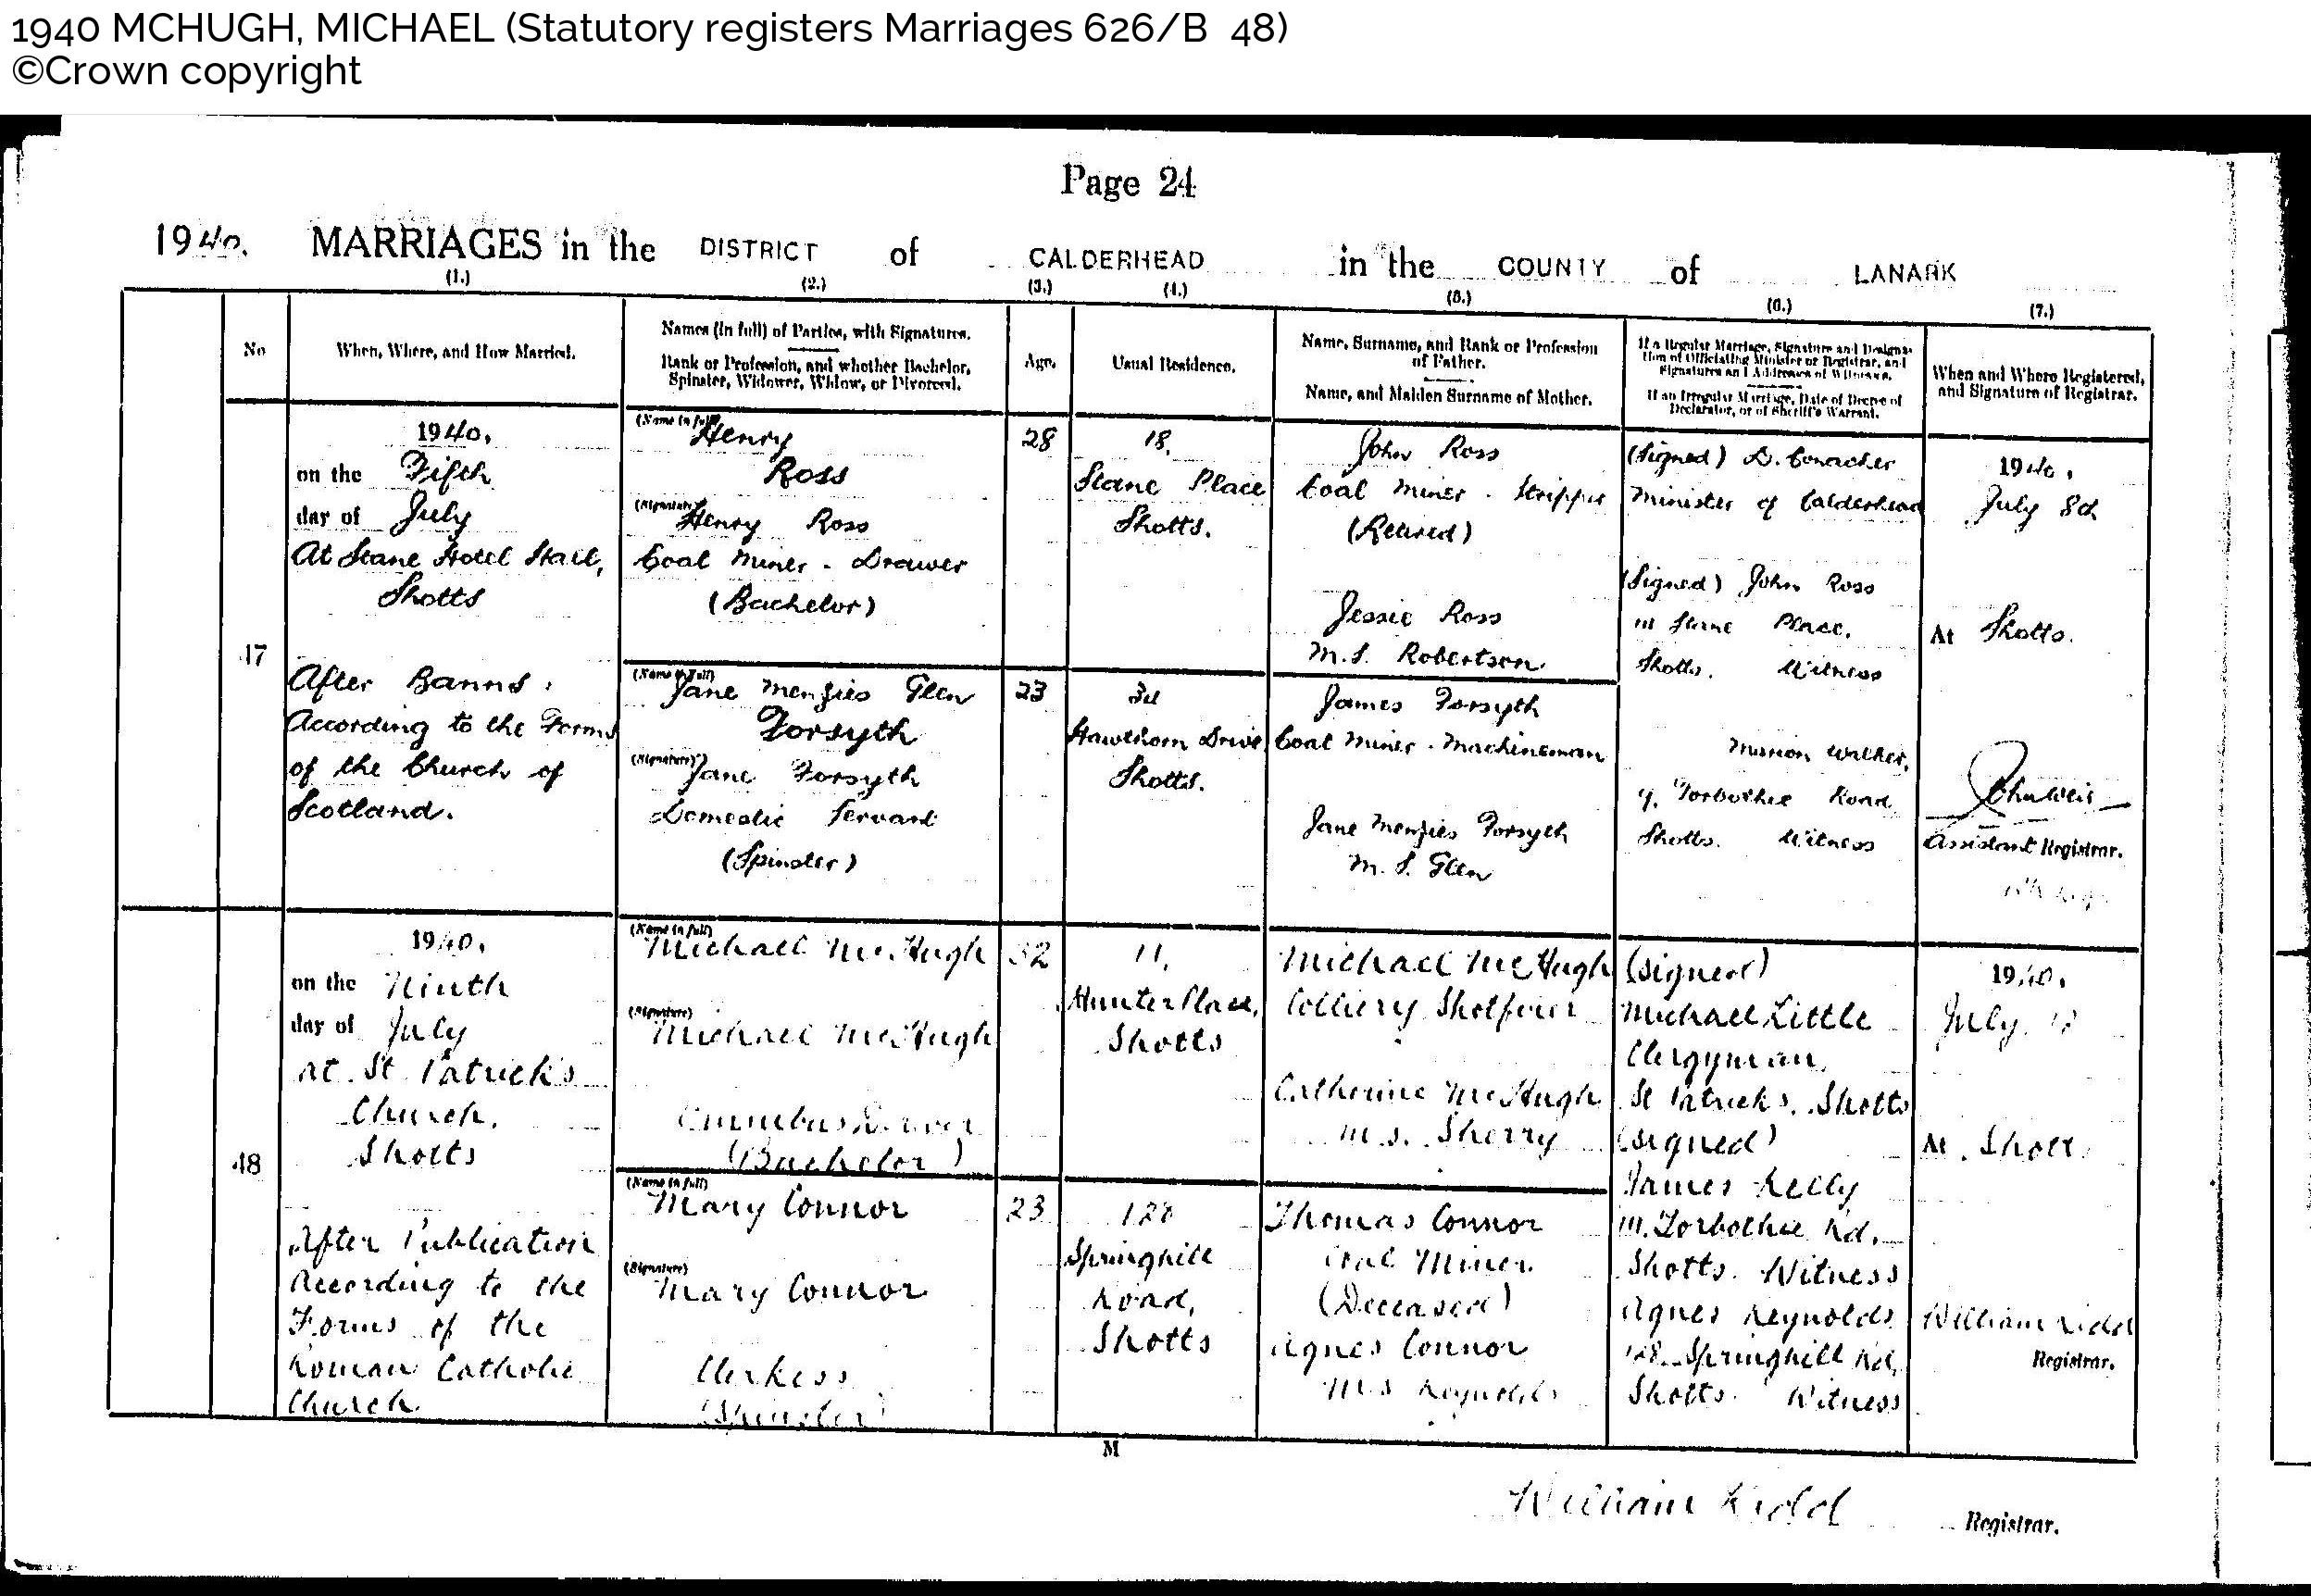 1940 MCHUGH, MICHAEL (Statutory registers Marriages 626/B 48)
©Crown copyright
Page 24
1940. MARRIAGES in the DISTRICT of CALDERHEAD in the COUNTY of LANARK
(1.) (2.) (3.) (4.) (5.) (6.) (7.)
No
When, Where, and How Married.
Names (in full) of Parties, with Signatures.
Rank or Profession, and whether Bachelor,
Spinster, Widower, Widow, or Divorced.
Age.
Usual Residence.
Name, Surname, and Rank or Profession
of Father.
Name, and Maiden Surname of Mother.
If a Regular Marriage, Signature and Designa-
tion of Officiating Minister or Registrar, and
Signatures and Addresses of Witnesses.
If an Irregular Marriage, Date of Decree of
Declarator, or of Sheriff's Warrant.
When and Where Registered,
and Signature of Registrar.
47
1940.
on the Fifth
day of July
At Stane Hotel Hall,
Shotts
After Banns.
According to the Forms
of the Church of
Scotland.
(Name in full)
Henry
Ross
(Signature)
Henry Ross
Coal Miner - Drawer
(Bachelor)
28
18.
Stane Place
Shotts.
John Ross
Coal Miner - Stripper
(Retired)
Jessie Ross
M.S. Robertson.
(Name in full)
Jane Menzies Glen
Forsyth
(Signature)
Jane Forsyth
Domestic Servant
(Spinster)
23
34
Hawthorn Drive
Shotts.
James Forsyth
Coal Miner - Machineman
Jane Menzies Forsyth
M.S. Glen
(Signed) D. Conacher
Minister of Calderhead
(Signed) John Ross
Stane Place.
Shotts. Witness
Marion Walker,
9, Torbothie Road
Shotts. Witness
1940.
July 8th
At Shotts.
John Weir
Assistant Registrar.
48
1940.
on the Ninth
day of July
at St. Patrick's
Church,
Shotts
After Publication
According to the
Forms of the
Roman Catholic
Church.
(Name in full)
Michael McHugh
(Signature)
Michael McHugh
Omnibus Driver
(Bachelor)
32
11,
Hunter Place,
Shotts
Michael McHugh
Colliery Shotfirer
Catherine McHugh
M.S. Sherry
(Name in full)
Mary Connor
(Signature)
Mary Connor
Clerkess
(Spinster)
23
128
Springhill
Road,
Shotts
Thomas Connor
Coal Miner
(Deceased)
Agnes Connor
M.S. Reynolds
(signed)
Michael Little
Clergyman,
St Patrick's, Shotts
(signed)
James Kelly
Torbothie Rd,
Shotts. Witness
Agnes Reynolds
128 Springhill Rd,
Shotts. Witness
1940.
July
At Shotts
William Kidd
Registrar.
M
William Kidd Registrar.